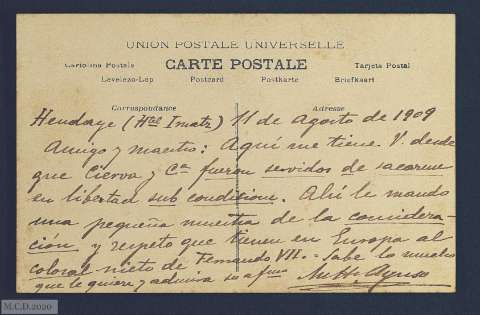 UNION POSTALE UNIVERSELLE
CARTE POSTALE
Cartolina Postale
Tarjeta Postal
Levelezo-Lap Postcard Postkarte Briefkaart
Correspondance Adresse
Hendaye (Htel Imatz) 11 de Agosto de 1909
Amigo y maestro: Aquí me tiene V. desde
que Cierva y Cª fueron servidos de sacarme
en libertad sub conditione. Ahí le mando
una pequeña muestra de la considera-
ción y respeto que tienen en Europa al
colosal nieto de Fernando VII. - Sabe lo mucho
que le quiere y admira su afmo
Ayuso
M.C.D.2020